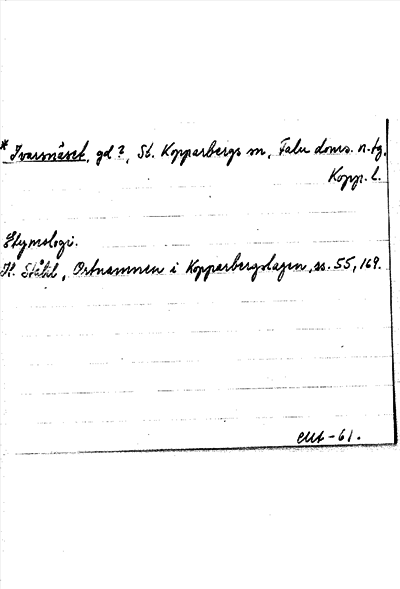 * Ivarsnäset, gd?, St. Kopparbergs sn, Falu doms. n. tg.
Kopp. l.
Etymologi.
H. Ståhl, Ortnamnen i Kopparbergslagen, ss. 55, 169.
-61.